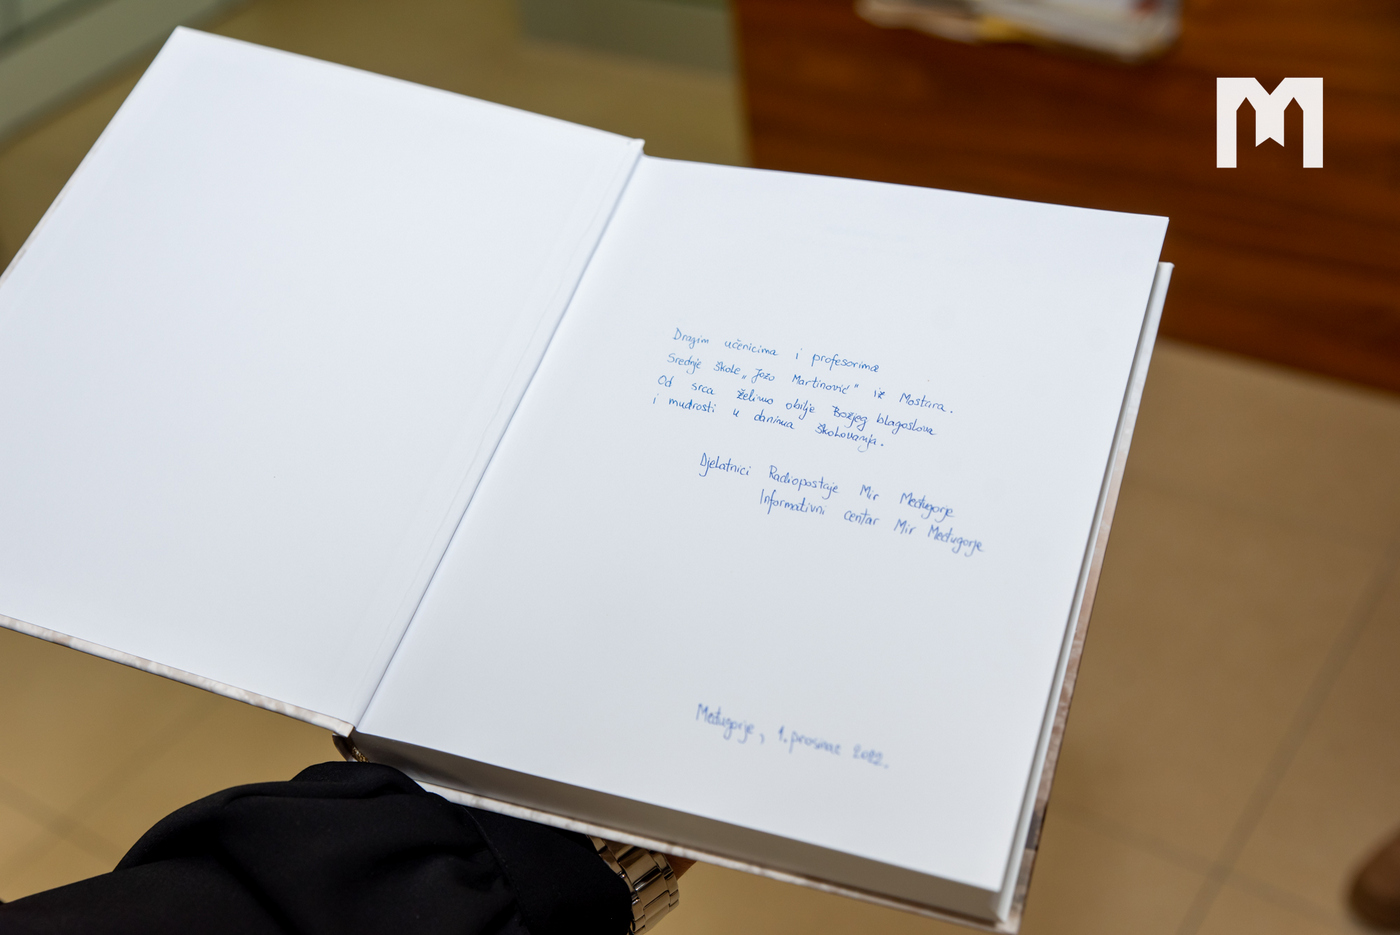 Dragim učenicima i profesorima
Srednje škole „Jozo Martinović" iz Mostara.
Od srca želimo obilje Božjeg blagoslova
i mudrosti u danima školovanja.
Djelatnici Radiopostaje Mir Međugorje
Informativni centar Mir Međugorje
Međugorje, 1. prosinac 2022.